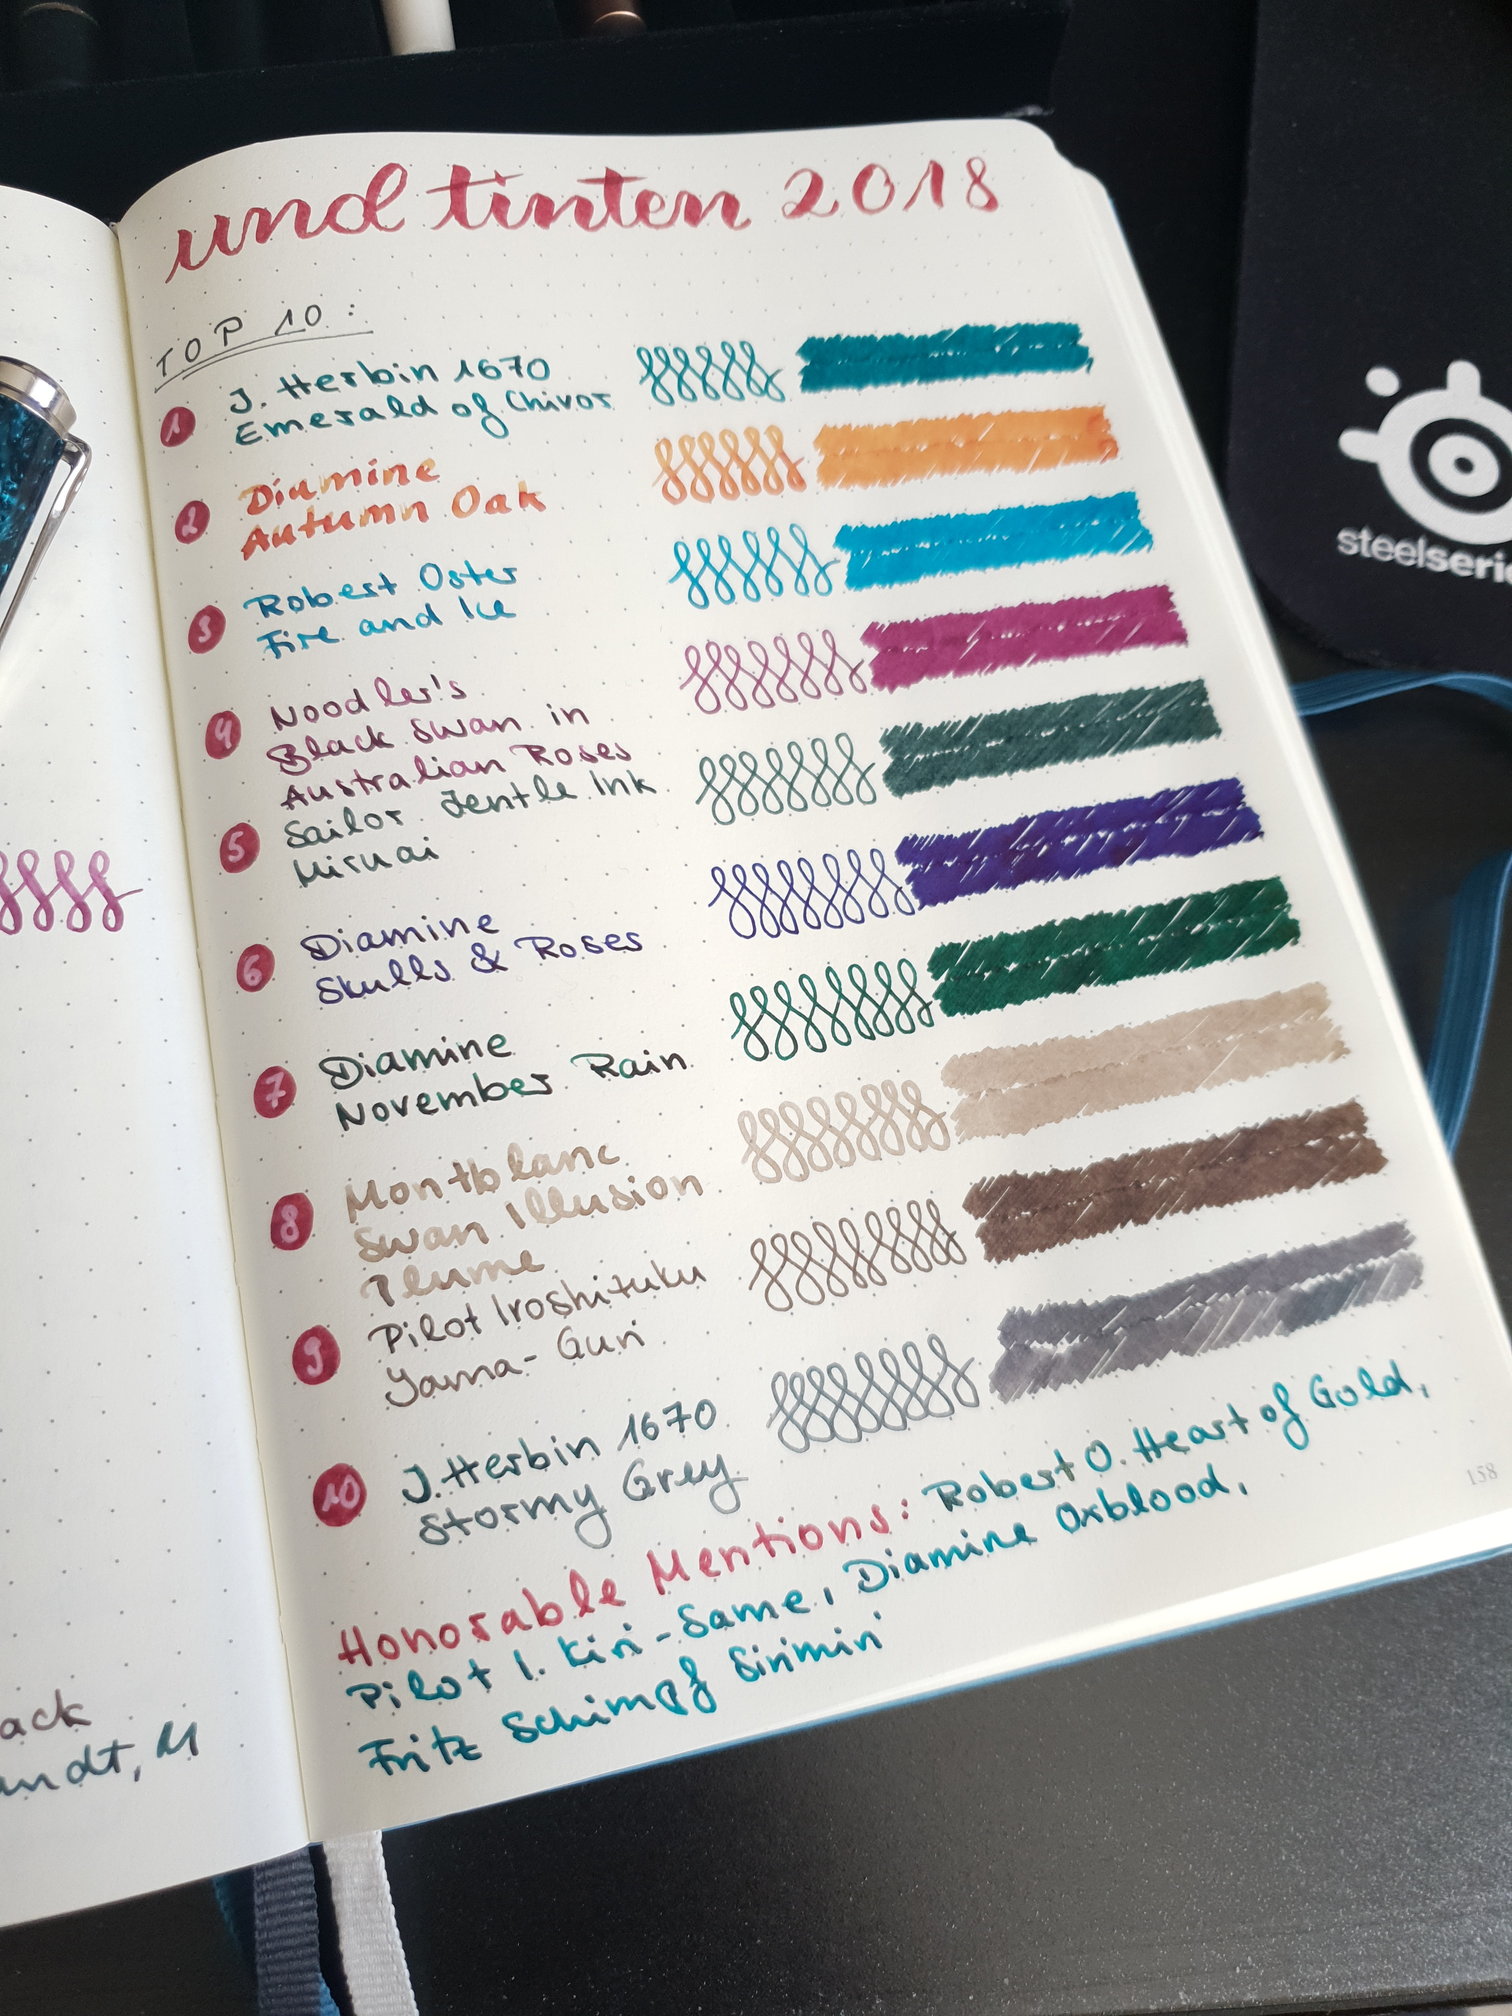 und tinten 2018
TOP 10:
1 J. Herbin 1670
Emerald of Chivor
2 Diamine
Autumn Oak
3 Robert Oster
Fire and Ice
4 Noodler's
Black Swan in
Australian Roses
5 Sailor Jentle Ink
Miruai
6 Diamine
Skulls & Roses
7 Diamine
November Rain
8 Montblanc
Swan Illusion
Plume
9 Pilot Iroshizuku
Yama-Guri
10 J. Herbin 1670
Stormy Grey
Honorable Mentions: Robert O. Heart of Gold,
Pilot I. Kiri-Same, Diamine Oxblood,
Fritz Schimpf Sirimiri
158
ack
andt, M
steelserie